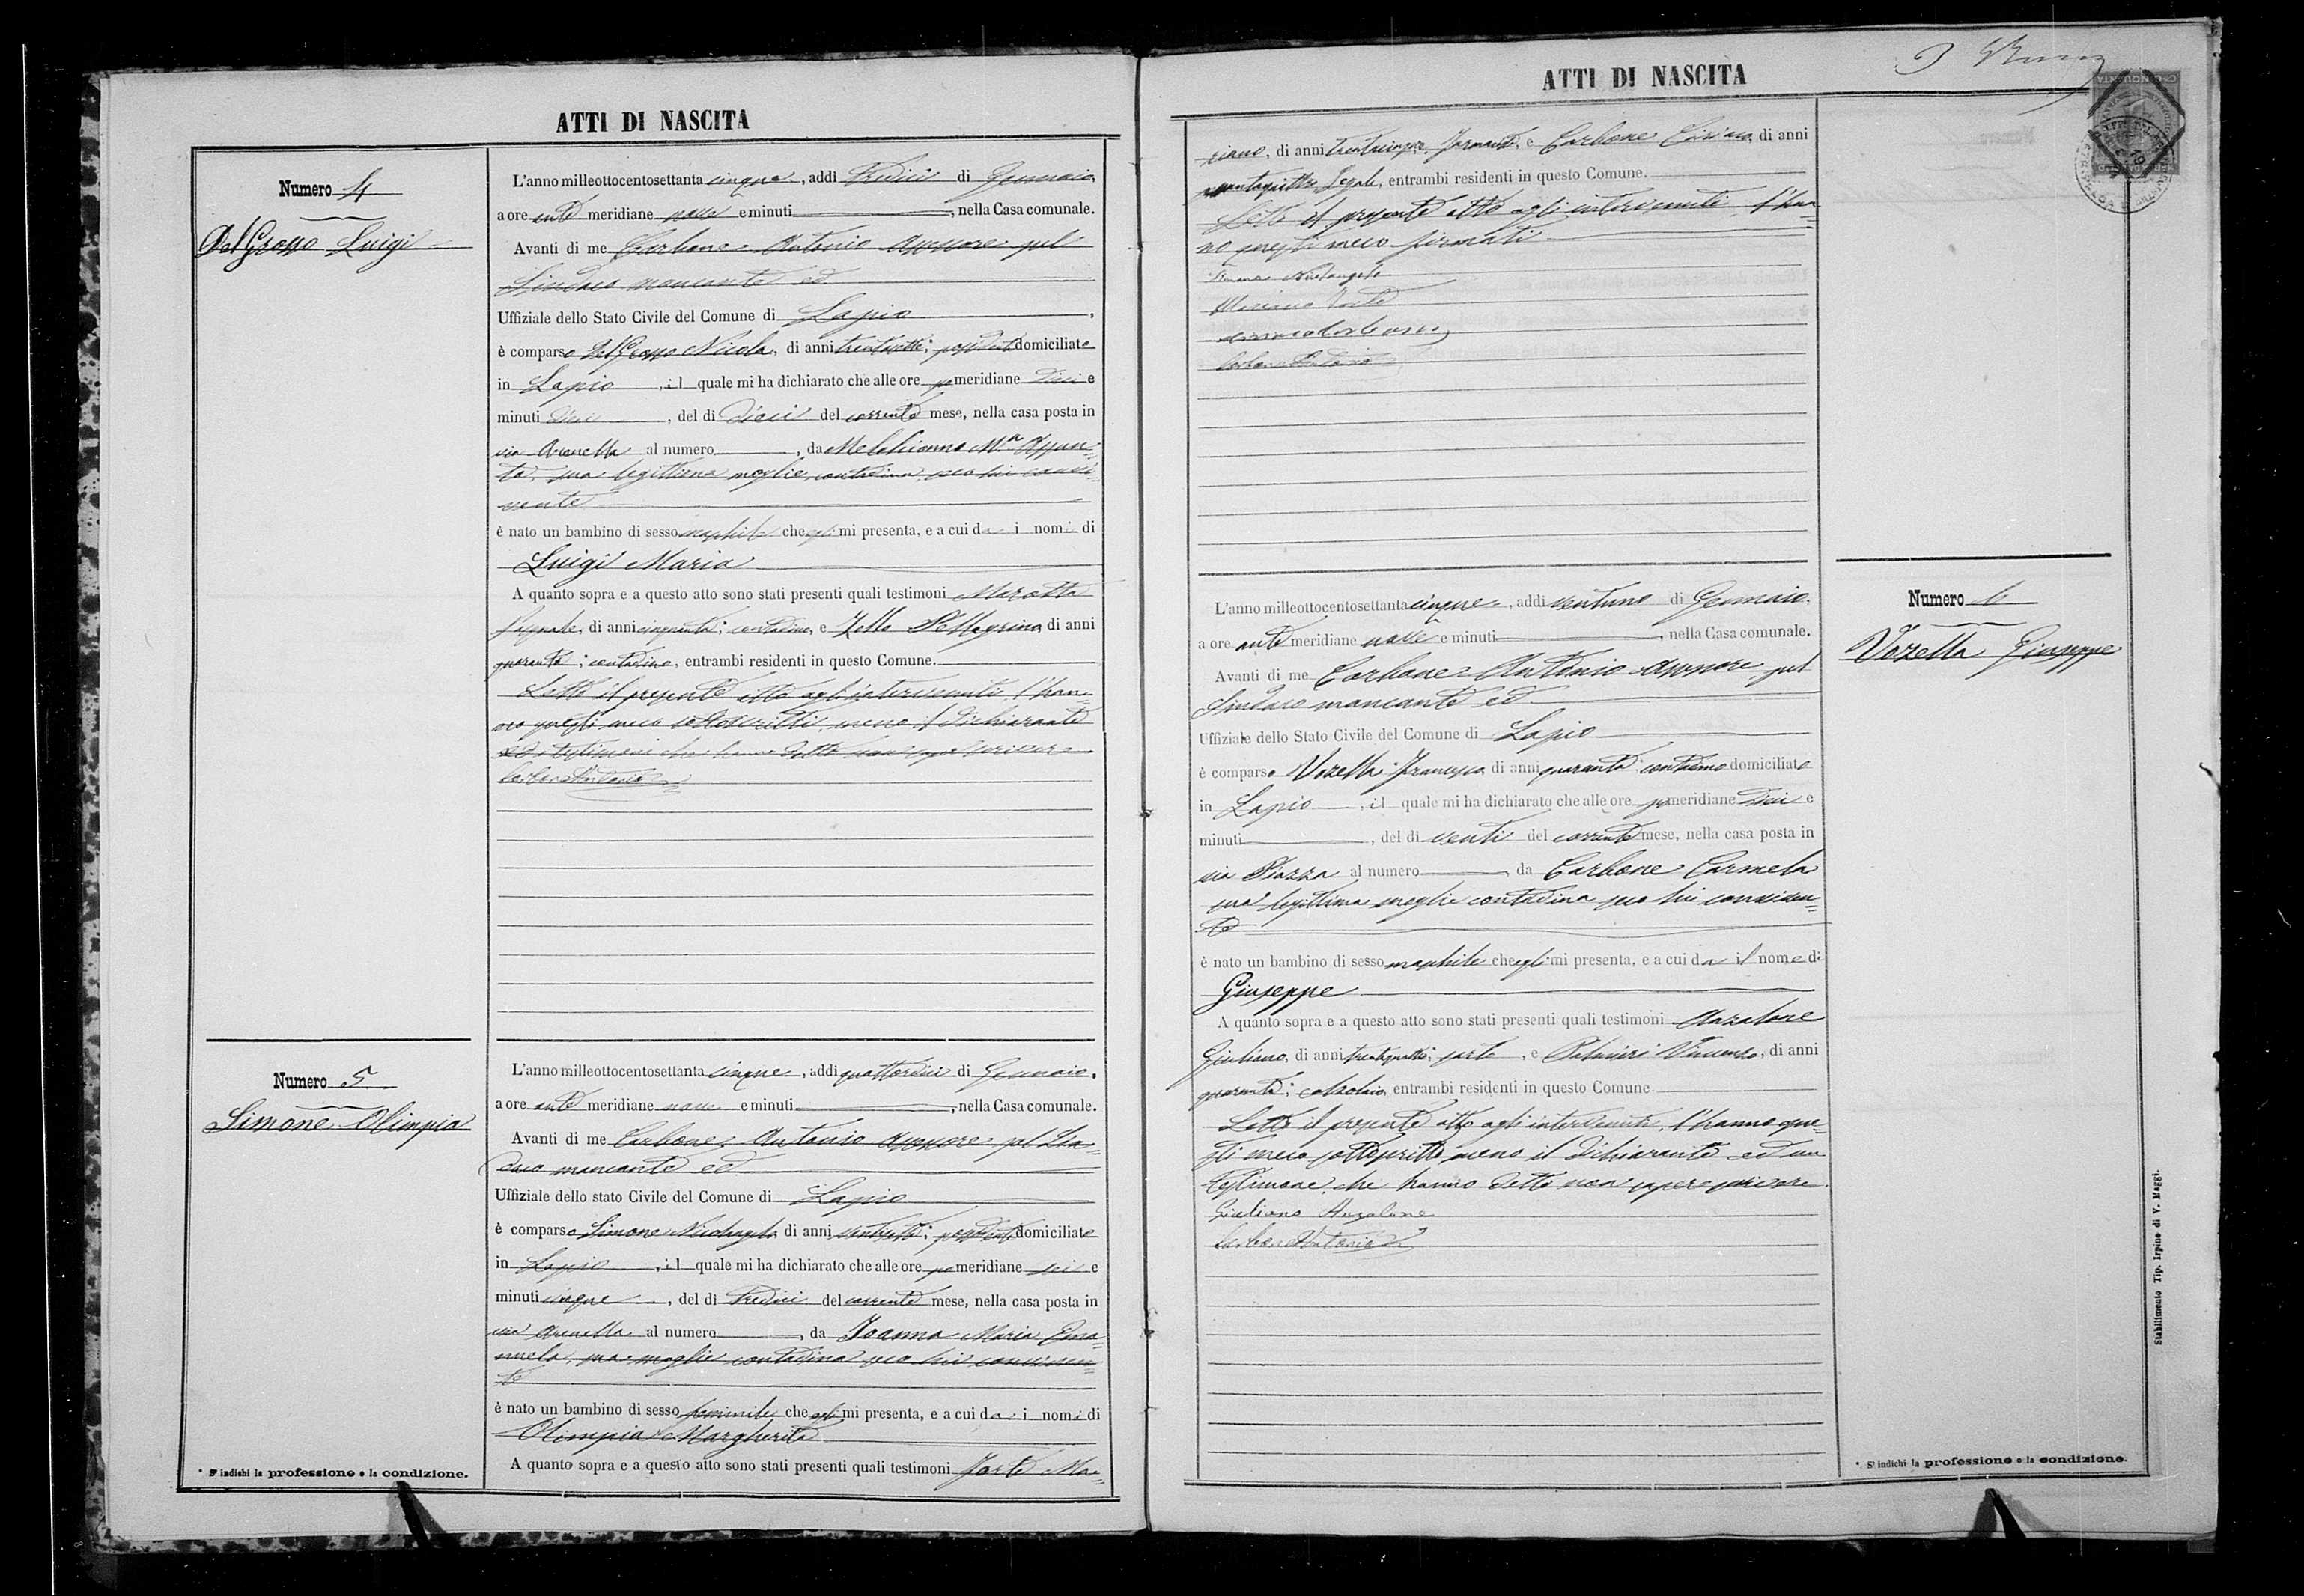 ATTI DI NASCITA
Numero 4
Del Grosso Luigi
L'anno milleottocentosettanta cinque, addì tredici di Gennaio,
a ore anti meridiane nove e minuti, nella Casa comunale.
Avanti di me Carbone Antonio Assessore pel
Sindaco mancante ed
Uffiziale dello Stato Civile del Comune di Lapio,
è comparso Del Grosso Nicola, di anni trentasette; possidente domiciliato
in Lapio, il quale mi ha dichiarato che alle ore po meridiane dieci e
minuti, del dì dieci del corrente mese, nella casa posta in
via Arenella al numero, da Melchionna M.a Assun=
ta, sua legittima moglie, contadina, seco lui convi=
vente
è nato un bambino di sesso maschile che egli mi presenta, e a cui dà i nomi di
Luigi Maria
A quanto sopra e a questo atto sono stati presenti quali testimoni Marotta
Pasquale, di anni cinquanta; contadino, e Zollo Pellegrino, di anni
quaranta; contadino, entrambi residenti in questo Comune.
Letto il presente atto agl'intervenuti, l'han=
no questi meco sottoscritto, meno il dichiarante
ed i testimoni che hanno detto non sapere scrivere
Carbone Antonio
Numero 5
Simone Olimpia
L'anno milleottocentosettanta cinque, addì quattordici di Gennaio,
a ore anti meridiane nove e minuti, nella Casa comunale.
Avanti di me Carbone Antonio Assessore pel Sin=
daco mancante ed
Uffiziale dello stato Civile del Comune di Lapio
è comparso Simone Nicolangelo, di anni ventisette; possidente domiciliato
in Lapio, il quale mi ha dichiarato che alle ore po meridiane sei e
minuti cinque, del dì tredici del corrente mese, nella casa posta in
via Arenella al numero, da Ioanna Maria Ema=
nuela, sua moglie contadina seco lui conviven=
te
è nato un bambino di sesso feminile che egli mi presenta, e a cui dà i nomi di
Olimpia Margherita
A quanto sopra e a questo atto sono stati presenti quali testimoni Forte Ma=
* S'indichi la professione o la condizione.
ATTI DI NASCITA
riano, di anni trentacinque, Farmacista, e Carbone Ciriaco, di anni
Legale, entrambi residenti in questo Comune.
Letto il presente atto agli intervenuti l'han=
no questi meco firmato
Simone Nicolangelo
Mariano Forte
Carbone Antonio
Numero 6
Vozella Giuseppe
L'anno milleottocentosettanta cinque, addì ventuno di Gennaio,
a ore anti meridiane nove e minuti, nella Casa comunale.
Avanti di me Carbone Antonio Assessore pel
Sindaco mancante ed
Uffiziale dello Stato Civile del Comune di Lapio
è comparso Vozella Francesco, di anni quaranta contadino domiciliato
in Lapio, il quale mi ha dichiarato che alle ore po meridiane dieci e
minuti, del dì venti del corrente mese, nella casa posta in
via Piazza al numero, da Carbone Carmela
sua legittima moglie contadina seco lui conviven=
te
è nato un bambino di sesso maschile che egli mi presenta, e a cui dà il nome di
Giuseppe
A quanto sopra e a questo atto sono stati presenti quali testimoni Anzalone
Giuliano, di anni trentaquattro; sarto, e Palmieri Vincenzo, di anni
quaranta; calzolaio, entrambi residenti in questo Comune
Letto il presente atto agli intervenuti, l'hanno que=
sti meco sottoscritto, meno il dichiarante ed un
testimone, che hanno detto non sapere scrivere.
Giuliano Anzalone
Carbone Antonio
* S'indichi la professione o la condizione.
Stabilimento Tip. Irpino di V. Maggi.